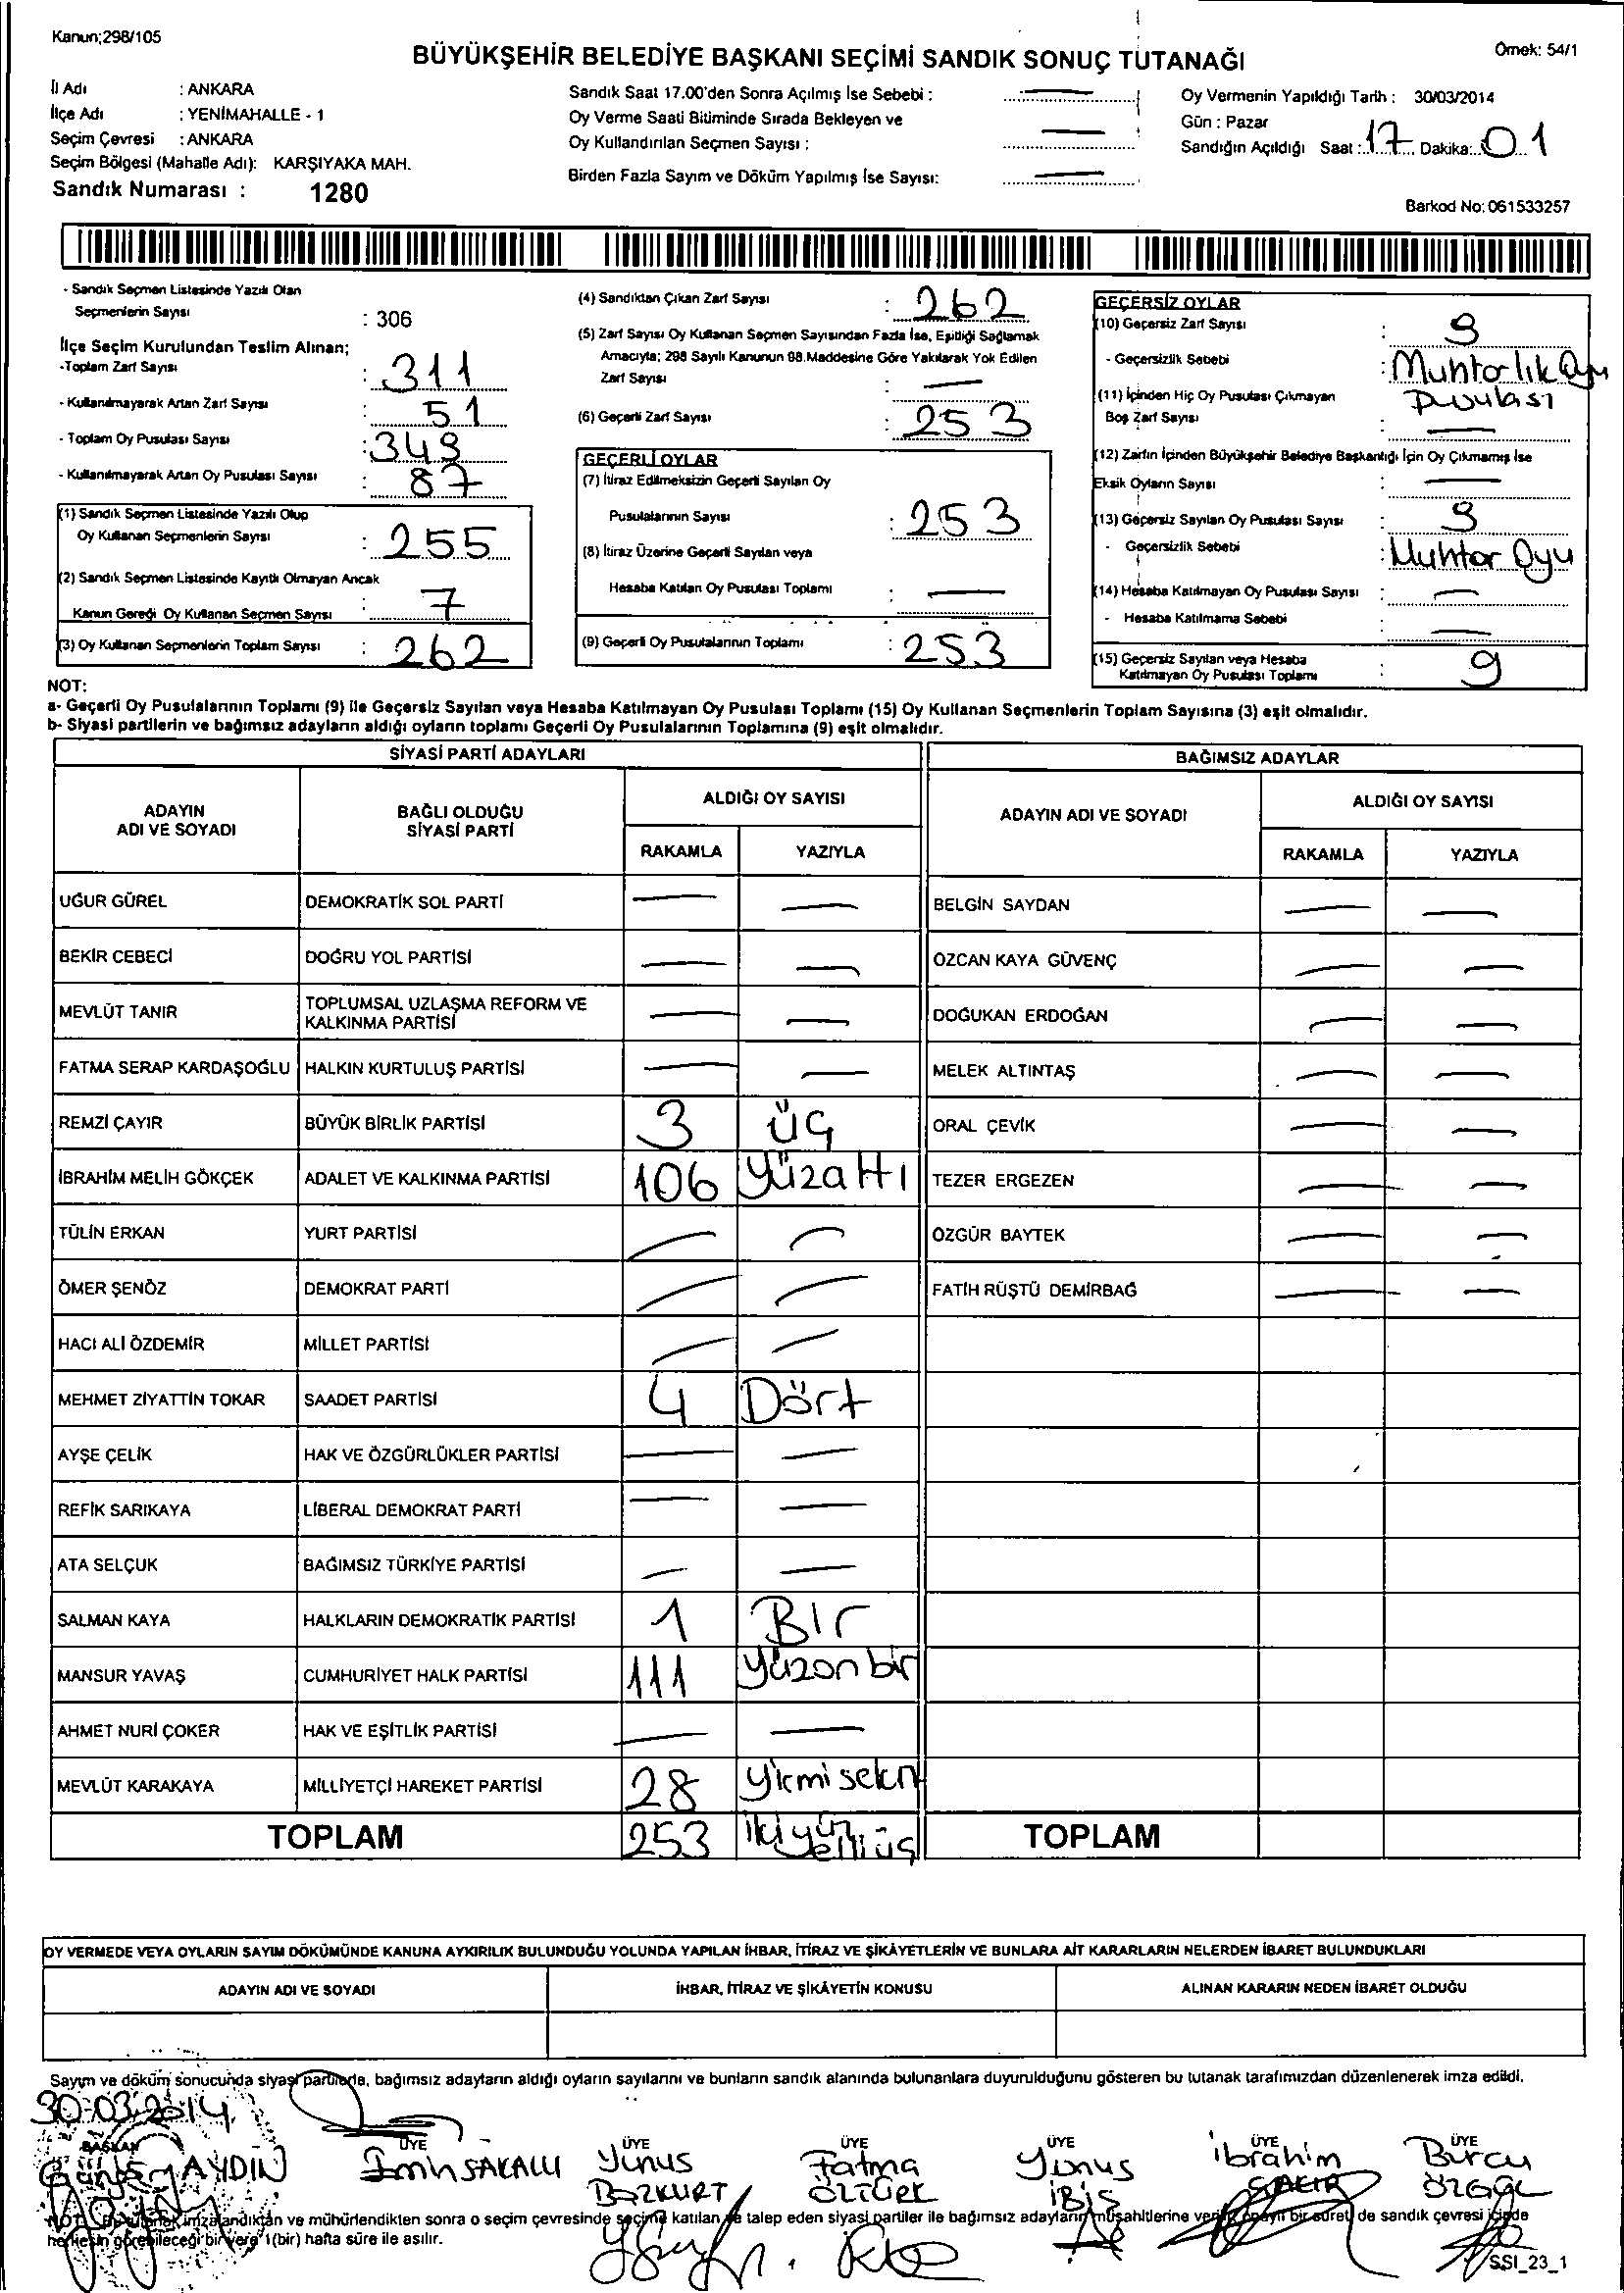 Kanun;298/105
BÜYÜKŞEHİR BELEDİYE BAŞKANI SEÇİMİ SANDIK SONUÇ TUTANAĞI
Örnek: 54/1
İl Adı : ANKARA
İlçe Adı : YENİMAHALLE - 1
Seçim Çevresi : ANKARA
Seçim Bölgesi (Mahalle Adı): KARŞIYAKA MAH.
Sandık Numarası : 1280
Sandık Saat 17.00'den Sonra Açılmış İse Sebebi : —
Oy Verme Saati Bitiminde Sırada Bekleyen ve
Oy Kullandırılan Seçmen Sayısı : —
Birden Fazla Sayım ve Döküm Yapılmış İse Sayısı: —
Oy Vermenin Yapıldığı Tarih : 30/03/2014
Gün : Pazar
Sandığın Açıldığı Saat : 17 Dakika: 01
Barkod No: 061533257
- Sandık Seçmen Listesinde Yazılı Olan
Seçmenlerin Sayısı : 306
İlçe Seçim Kurulundan Teslim Alınan;
-Toplam Zarf Sayısı : 311
- Kullanılmayarak Artan Zarf Sayısı : 51
- Toplam Oy Pusulası Sayısı : 349
- Kullanılmayarak Artan Oy Pusulası Sayısı : 87
(1) Sandık Seçmen Listesinde Yazılı Olup
Oy Kullanan Seçmenlerin Sayısı : 255
(2) Sandık Seçmen Listesinde Kayıtlı Olmayan Ancak
Kanun Gereği Oy Kullanan Seçmen Sayısı : 7
(3) Oy Kullanan Seçmenlerin Toplam Sayısı : 262
(4) Sandıktan Çıkan Zarf Sayısı : 262
(5) Zarf Sayısı Oy Kullanan Seçmen Sayısından Fazla İse, Eşitliği Sağlamak
Amacıyla; 298 Sayılı Kanunun 98.Maddesine Göre Yakılarak Yok Edilen
Zarf Sayısı : —
(6) Geçerli Zarf Sayısı : 253
GEÇERLİ OYLAR
(7) İtiraz Edilmeksizin Geçerli Sayılan Oy
Pusulalarının Sayısı : 253
(8) İtiraz Üzerine Geçerli Sayılan veya
Hesaba Katılan Oy Pusulası Toplamı : —
(9) Geçerli Oy Pusulalarının Toplamı : 253
GEÇERSİZ OYLAR
(10) Geçersiz Zarf Sayısı : 9
- Geçersizlik Sebebi : Muhtarlık Oyu
Pusulası
(11) İçinden Hiç Oy Pusulası Çıkmayan
Boş Zarf Sayısı : —
(12) Zarfın İçinden Büyükşehir Belediye Başkanlığı İçin Oy Çıkmamış İse
Eksik Oyların Sayısı : —
(13) Geçersiz Sayılan Oy Pusulası Sayısı : 9
- Geçersizlik Sebebi : Muhtar Oyu
(14) Hesaba Katılmayan Oy Pusulası Sayısı : —
- Hesaba Katılmama Sebebi : —
(15) Geçersiz Sayılan veya Hesaba
Katılmayan Oy Pusulası Toplamı : 9
NOT:
a- Geçerli Oy Pusulalarının Toplamı (9) ile Geçersiz Sayılan veya Hesaba Katılmayan Oy Pusulası Toplamı (15) Oy Kullanan Seçmenlerin Toplam Sayısına (3) eşit olmalıdır.
b- Siyasi partilerin ve bağımsız adayların aldığı oyların toplamı Geçerli Oy Pusulalarının Toplamına (9) eşit olmalıdır.
SİYASİ PARTİ ADAYLARI
BAĞIMSIZ ADAYLAR
ADAYIN ADI VE SOYADI
BAĞLI OLDUĞU SİYASİ PARTİ
ALDIĞI OY SAYISI
RAKAMLA YAZIYLA
ADAYIN ADI VE SOYADI
ALDIĞI OY SAYISI
RAKAMLA YAZIYLA
UĞUR GÜREL DEMOKRATİK SOL PARTİ — — BELGİN SAYDAN — —
BEKİR CEBECİ DOĞRU YOL PARTİSİ — — ÖZCAN KAYA GÜVENÇ — —
MEVLÜT TANIR TOPLUMSAL UZLAŞMA REFORM VE KALKINMA PARTİSİ — — DOĞUKAN ERDOĞAN — —
FATMA SERAP KARDAŞOĞLU HALKIN KURTULUŞ PARTİSİ — — MELEK ALTINTAŞ — —
REMZİ ÇAYIR BÜYÜK BİRLİK PARTİSİ 3 üç ORAL ÇEVİK — —
İBRAHİM MELİH GÖKÇEK ADALET VE KALKINMA PARTİSİ 106 yüzaltı TEZER ERGEZEN — —
TÜLİN ERKAN YURT PARTİSİ — — ÖZGÜR BAYTEK — —
ÖMER ŞENÖZ DEMOKRAT PARTİ — — FATİH RÜŞTÜ DEMİRBAĞ — —
HACI ALİ ÖZDEMİR MİLLET PARTİSİ — —
MEHMET ZİYATTİN TOKAR SAADET PARTİSİ 4 Dört
AYŞE ÇELİK HAK VE ÖZGÜRLÜKLER PARTİSİ — —
REFİK SARIKAYA LİBERAL DEMOKRAT PARTİ — —
ATA SELÇUK BAĞIMSIZ TÜRKİYE PARTİSİ — —
SALMAN KAYA HALKLARIN DEMOKRATİK PARTİSİ 1 Bir
MANSUR YAVAŞ CUMHURİYET HALK PARTİSİ 111 yüzonbir
AHMET NURİ ÇOKER HAK VE EŞİTLİK PARTİSİ — —
MEVLÜT KARAKAYA MİLLİYETÇİ HAREKET PARTİSİ 28 yirmisekn
TOPLAM 253 ikiyüz elliüç TOPLAM
OY VERMEDE VEYA OYLARIN SAYIM DÖKÜMÜNDE KANUNA AYKIRILIK BULUNDUĞU YOLUNDA YAPILAN İHBAR, İTİRAZ VE ŞİKÂYETLERİN VE BUNLARA AİT KARARLARIN NELERDEN İBARET BULUNDUKLARI
ADAYIN ADI VE SOYADI İHBAR, İTİRAZ VE ŞİKÂYETİN KONUSU ALINAN KARARIN NEDEN İBARET OLDUĞU
Sayım ve döküm sonucunda siyasi partilerle, bağımsız adayların aldığı oyların sayılarını ve bunların sandık alanında bulunanlara duyurulduğunu gösteren bu tutanak tarafımızdan düzenlenerek imza edildi.
30.03.2014
BAŞKAN ÜYE ÜYE ÜYE ÜYE ÜYE ÜYE
AYDIN Emin SAKALLI Yunus BOZKURT Fatma ÖZTÜRK Yunus İBİŞ İbrahim ÇAKIR Burcu
NOT: Bu tutanak imzalandıktan ve mühürlendikten sonra o seçim çevresinde seçime katılan ve talep eden siyasi partiler ile bağımsız adayların müşahitlerine verilir, onaylı bir sureti de sandık çevresi içinde
herkesin görebileceği bir yere 1(bir) hafta süre ile asılır.
SSI_23_1